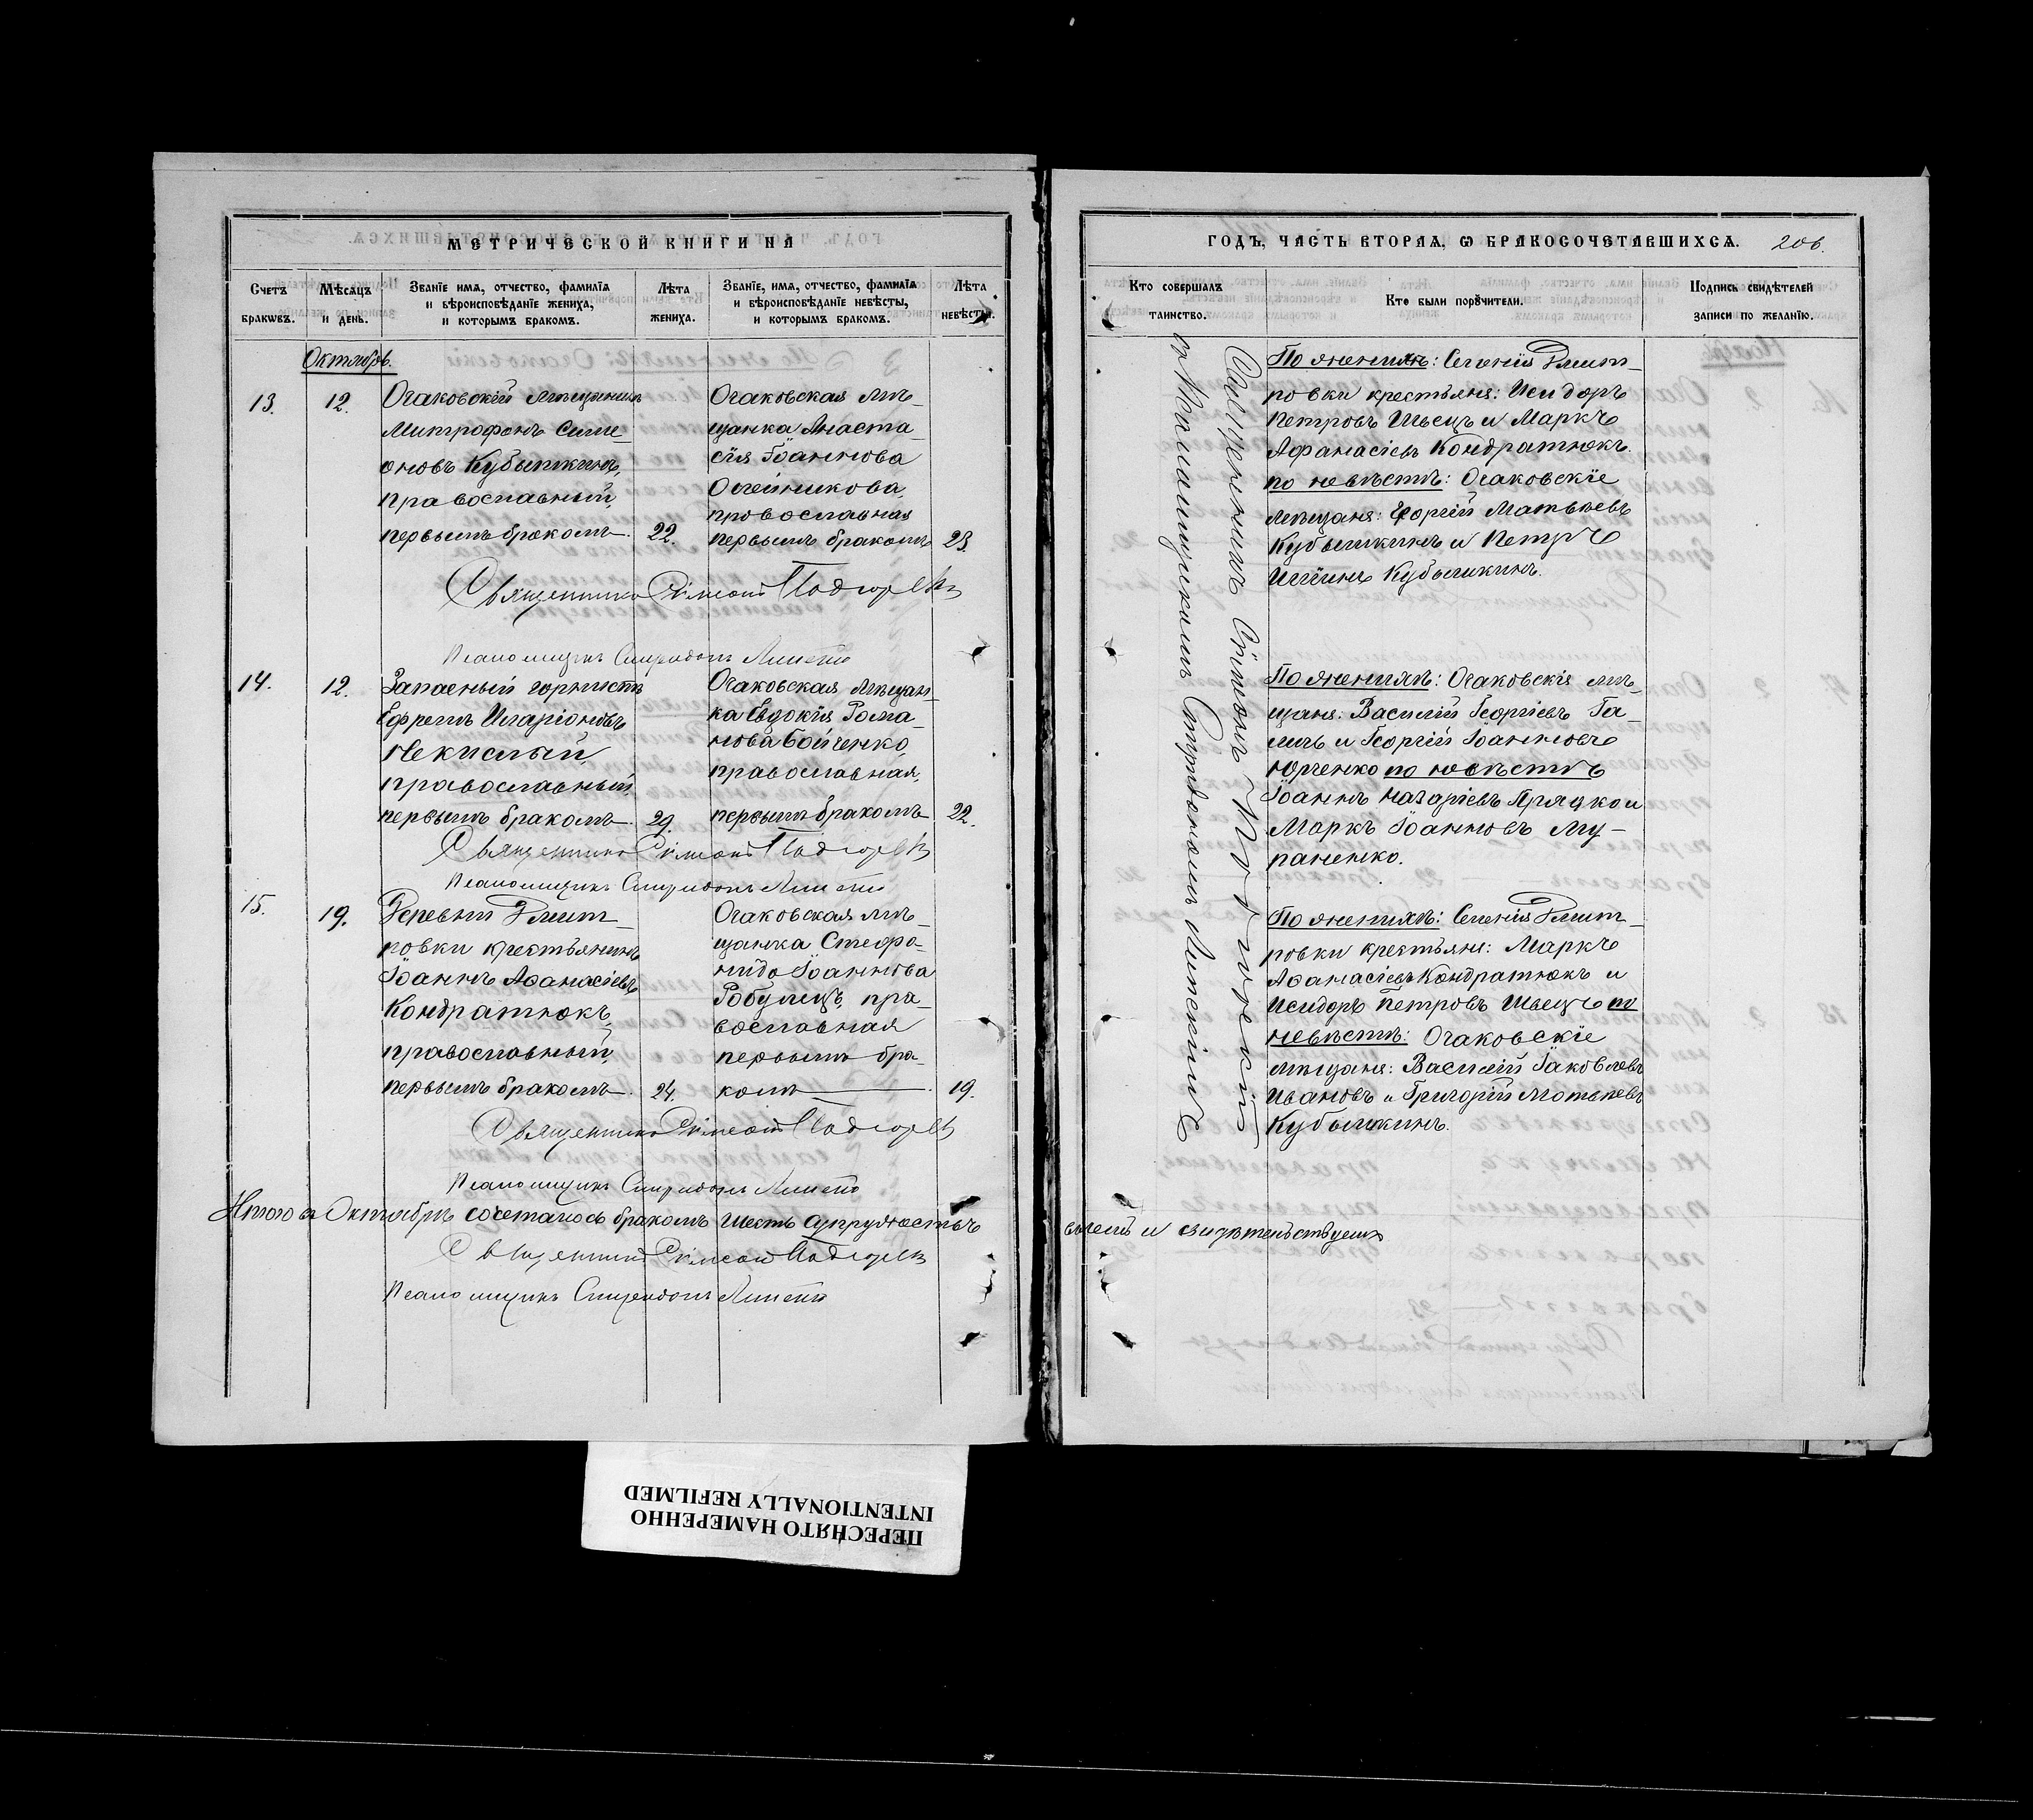 МЕТРИЧЕСКОЙ КНИГИ НА
Счетъ браковъ.
Мѣсяцъ и день.
Званїе имя, отчество, фамилїя
и вѣроисповѣданїе жениха,
и которымъ бракомъ.
Лѣта
жениха.
Званїе, имя, отчество, фамилїя
и вѣроисповѣданїе невѣсты,
и которымъ бракомъ.
Лѣта
невѣсты.
Октябрь.
13.
12.
Очаковскій мѣщанинъ
Митрофанъ Симе
оновъ Кубышкинъ,
православный,
первымъ бракомъ
22.
Очаковская мѣ-
щанка Анаста-
сія Іоаннова
Олейникова,
православная
первымъ бракомъ
23.
Священникъ Сімеонъ Подгорскій
Псаломщикъ Спиридонъ Липскій
14.
12.
Запасный горнистъ
Ефремъ Иларіоновъ
Некислый,
православный,
первымъ бракомъ
29.
Очаковская мѣщан-
ка Евдокія Рома-
нова Бойченко,
православная,
первымъ бракомъ
22.
Священникъ Сімеонъ Подгорскій
Псаломщикъ Спиридонъ Липскій
15.
19.
Деревни Дмит-
ровки крестьянинъ
Іоаннъ Аѳанасіевъ
Кондратюкъ,
православный,
первымъ бракомъ
24.
Очаковская мѣ-
щанка Стефа-
нида Іоаннова
Робулецъ, пра-
вославная
первымъ бра-
комъ
19.
Священникъ Сімеонъ Подгорскій
Псаломщикъ Спиридонъ Липскій
Итого въ Октябрѣ сочеталось бракомъ шесть супружествъ
Священникъ Сімеонъ Подгорскій
Псаломщикъ Спиридонъ Липскій
ГОДЪ, ЧАСТЬ ВТОРАЯ, Ѡ БРАКОСОЧЕТАВШИХСЯ.
206.
Кто совершалъ
таинство.
Кто были порꙋчители.
Подпись свидѣтелей
записи по желанїю.
Священникъ Сімеонъ Подгорскій
съ Псаломщикомъ Спиридономъ Липскимъ
По женихѣ: Селенія Дмит-
ровки крестьяне: Исидоръ
Петровъ Швецъ и Маркъ
Афанасіевъ Кондратюкъ.
по невѣстѣ: Очаковскіе
мѣщане: Георгій Матвѣевъ
Кубышкинъ и Петръ
Ильинъ Кубышкинъ.
По женихѣ: Очаковскія мѣ-
щане: Василій Георгіевъ Га-
личъ и Георгій Іоанновъ
Юрченко по невѣстѣ
Іоаннъ Назаріевъ Прядко и
Маркъ Іоанновъ Лу-
паненко.
По женихѣ: Селенія Дмит-
ровки крестьяне: Маркъ
Аѳанасіевъ Кондратюкъ и
Исидоръ Петровъ Швецъ по
невѣстѣ: Очаковскіе
мѣщане: Василій Іаковлевъ
Ивановъ и Григорій Матвѣевъ
Кубышкинъ.
въ семъ и свидѣтельствуемъ
ПЕРЕСНЯТО НАМЕРЕННО
INTENTIONALLY REFILMED